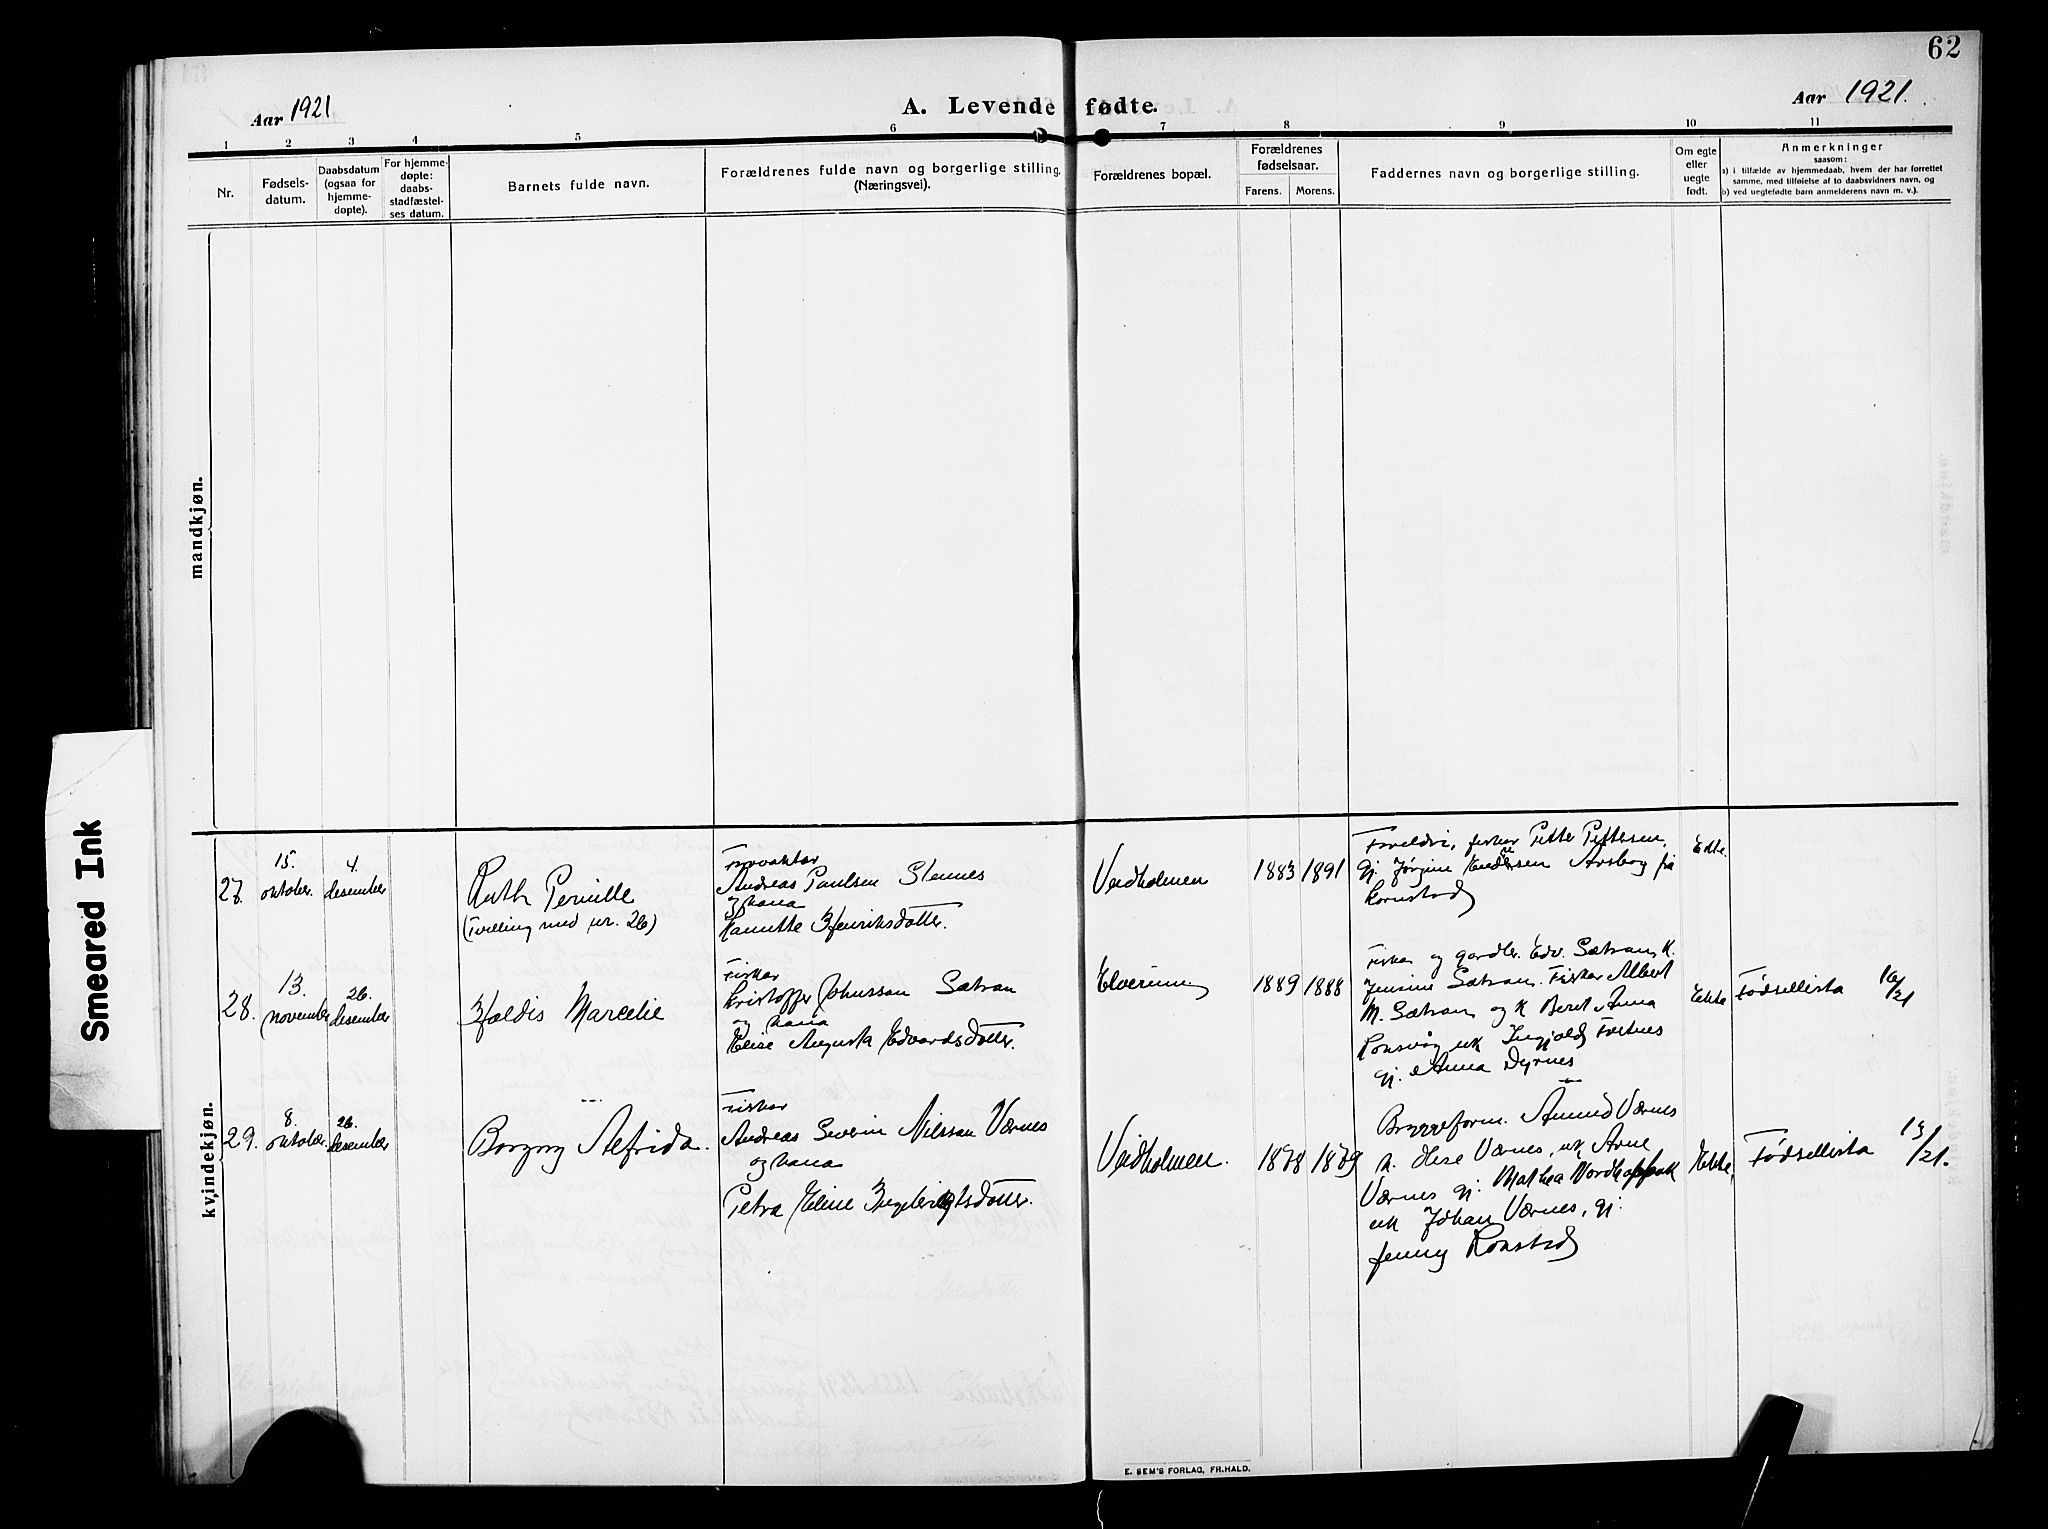 62
Aar 1921
A. Levende fødte.
Aar 1921.
1 2 3 4 5 6 7 8 9 10 11
Nr.
Fødsels-
datum.
Daabsdatum
(ogsaa for
hjemme-
døpte).
For hjemme-
døpte:
daabs-
stadfæstel-
ses datum.
Barnets fulde navn.
Forældrenes fulde navn og borgerlige stilling.
(Næringsvei).
Forældrenes bopæl.
Forældrenes
fødselsaar.
Farens. Morens.
Faddernes navn og borgerlige stilling.
Om egte
eller
uegte
født.
Anmerkninger
saasom:
a) i tilfælde av hjemmedaab, hvem der har forrettet
samme, med tilføielse af to daabsvidners navn, og
b) ved uegtefødte barn anmelderens navn m. v.).
mandkjøn.
Smeared Ink
kvindekjøn.
27.
15.
oktober.
4.
desember
Ruth Pernille
(Tvilling med nr. 26)
Andreas Paulsen Stennes
og kona
Hanette Henriksdotter.
Veidholmen
1883 1891
Foreldri, fiskar Petter Pettersen,
gj. Jørgine
Kornstad
Ekte.
28.
13.
november
26.
desember
Haldis Marcelie
Fiskar
Kristoffer Johnsson Sætran
og kona
Elise Augusta Edvardsdotter.
1889 1888
Fiskar og gardbr. Edv. Sætran K.
Jensine Sætran. Fiskar Albert
M. Sætran og K Beret Anna
Ronsvåg uk Ingjald
gj. Anna Dyrnes
Ekte
Fødsellista 16/21
29.
8.
oktober.
26.
desember
Borgny Alfrida.
Fiskar
Andreas Severin Nilsson Værnes
og kona
Petra Eline Ingebrigtsdotter.
Veidholmen.
1878 1879
Bryggeform. Amund Værnes
k. Elise Værnes, uk Arne
Værnes gj. Mathea
uk Johan Værnes, gj.
Jenny Rokstad
Ekte
Fødsellista 13/21.
E. SEM'S FORLAG, FR.HALD.